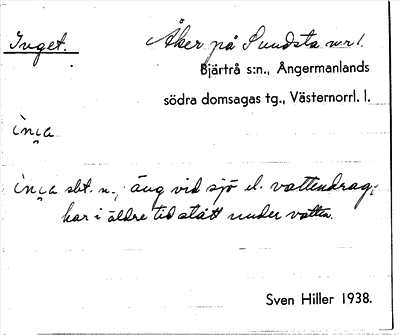 Inget. Åker på Sundsta nr 1.
Bjärtrå s:n., Ångermanlands
södra domsagas tg., Västernorrl. l.
 iṇa
iṇa sbt. n., äng vid sjö el. vattendrag;
har i äldre tid stått under vatten.
Sven Hiller 1938.